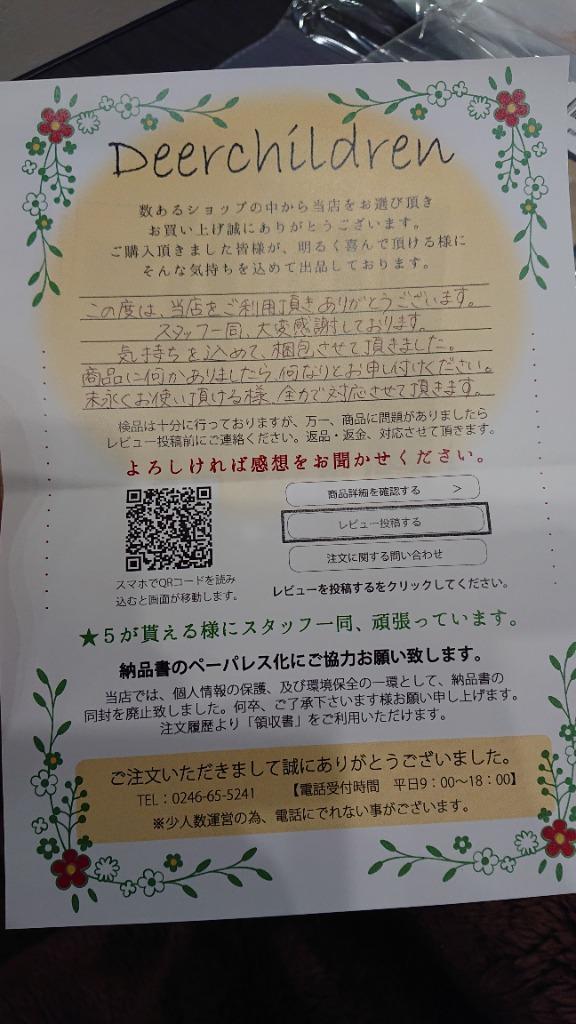 Deerchildren
数あるショップの中から当店をお選び頂き
お買い上げ誠にありがとうございます。
ご購入頂きました皆様が、明るく喜んで頂ける様に
そんな気持ちを込めて出品しております。
この度は、当店をご利用頂きありがとうございます。
スタッフ一同、大変感謝しております。
気持ちを込めて、梱包させて頂きました。
商品に何かありましたら、何なりとお申し付けください。
末永くお使い頂ける様、全力で対応させて頂きます。
検品は十分に行っておりますが、万一、商品に問題がありましたら
レビュー投稿前にご連絡ください。返品・返金、対応させて頂きます。
よろしければ感想をお聞かせください。
商品詳細を確認する >
レビュー投稿する
注文に関する問い合わせ
スマホでQRコードを読み
込むと画面が移動します。
レビューを投稿するをクリックしてください。
★5が貰える様にスタッフ一同、頑張っています。
納品書のペーパレス化にご協力お願い致します。
当店では、個人情報の保護、及び環境保全の一環として、納品書の
同封を廃止致しました。何卒、ご了承下さいます様お願い申し上げます。
注文履歴より「領収書」をご利用いただけます。
ご注文いただきまして誠にありがとうございました。
TEL:0246-65-5241 【電話受付時間 平日9:00〜18:00】
※少人数運営の為、電話にでれない事がございます。